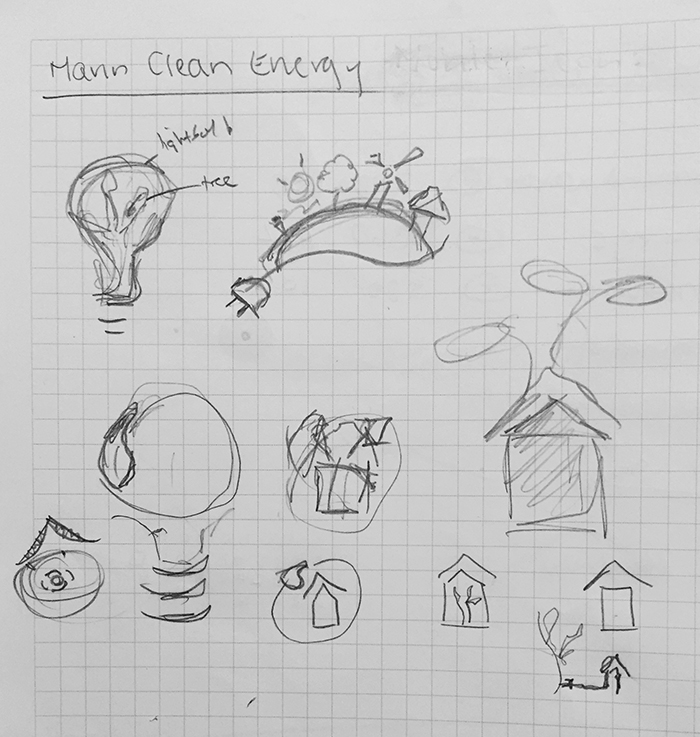 Mann Clean Energy
lightbulb
tree